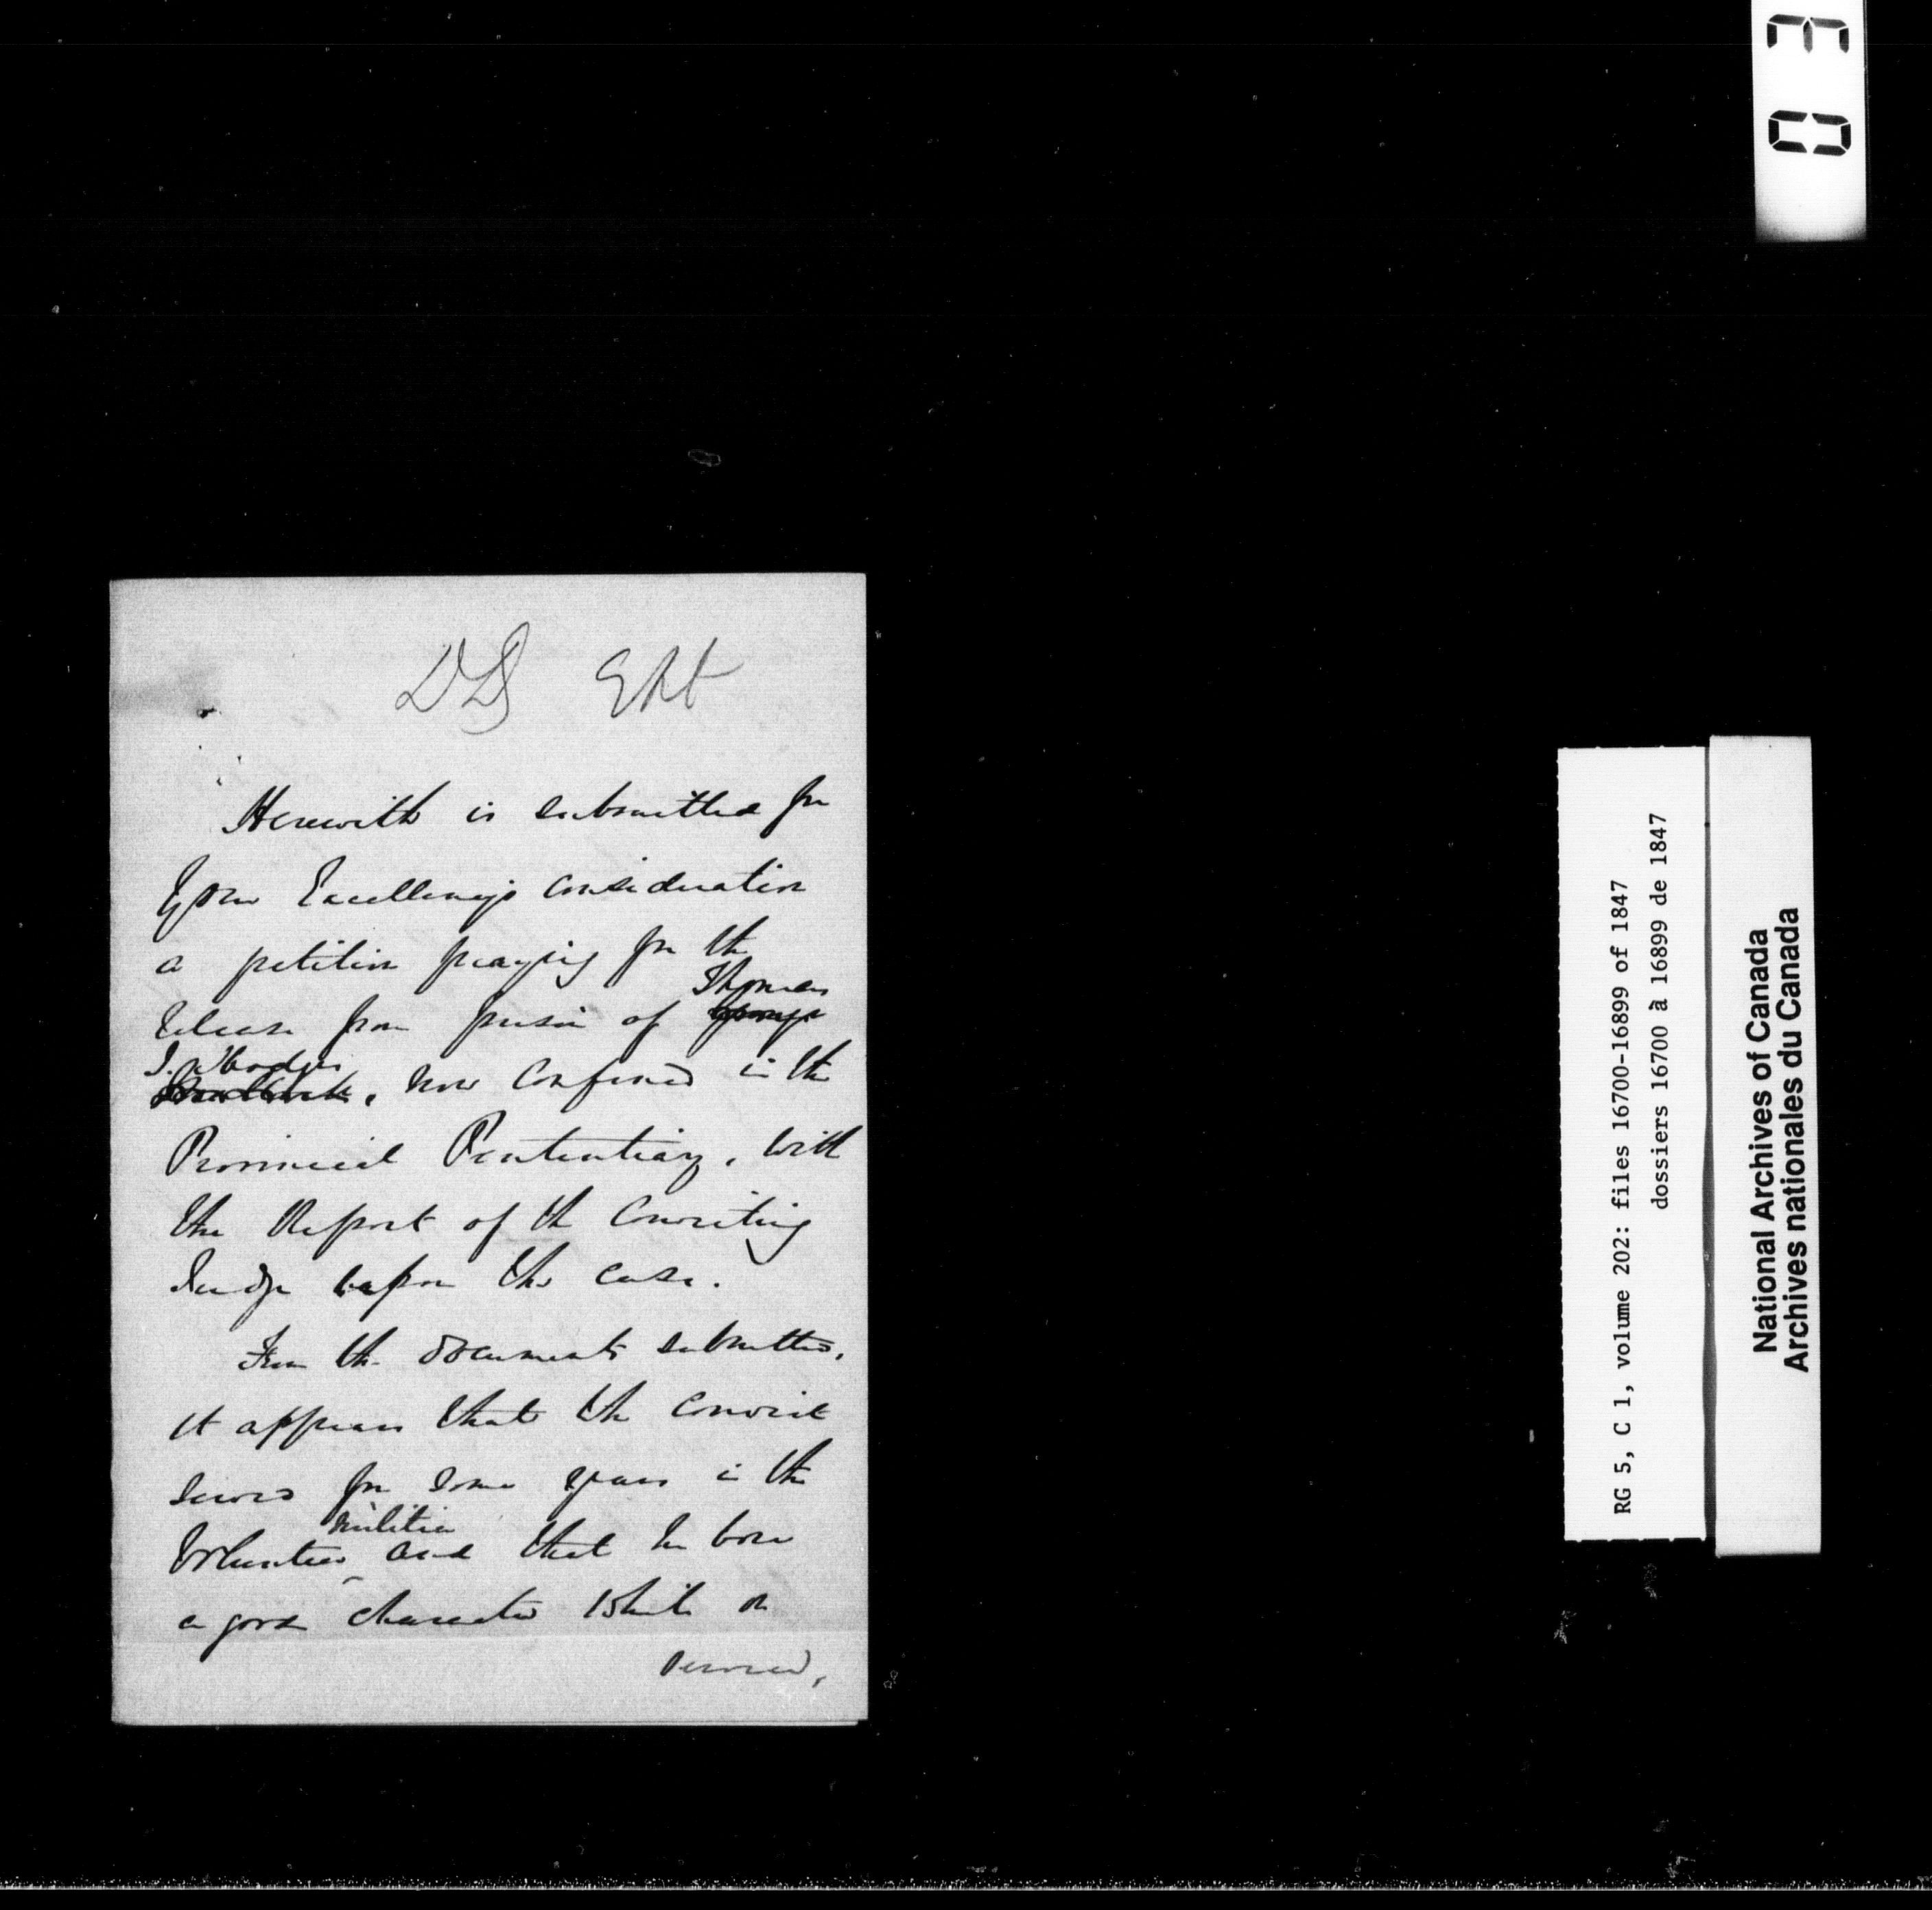 03
Herewith is submitted for
Your Excellency's consideration
a petition praying for the
Thomas
release from prison of George
I. Rhodes
, now confined in the
Provincial Penitentiary, with
the Report of the Convicting
Judge upon the case.
From the documents submitted,
it appears that the convict
served for some years in the
militia
Volunteer and that he bore
a good character while on
service,
RG 5, C 1, volume 202: files 16700-16899 of 1847
dossiers 16700 à 16899 de 1847
National Archives of Canada
Archives nationales du Canada